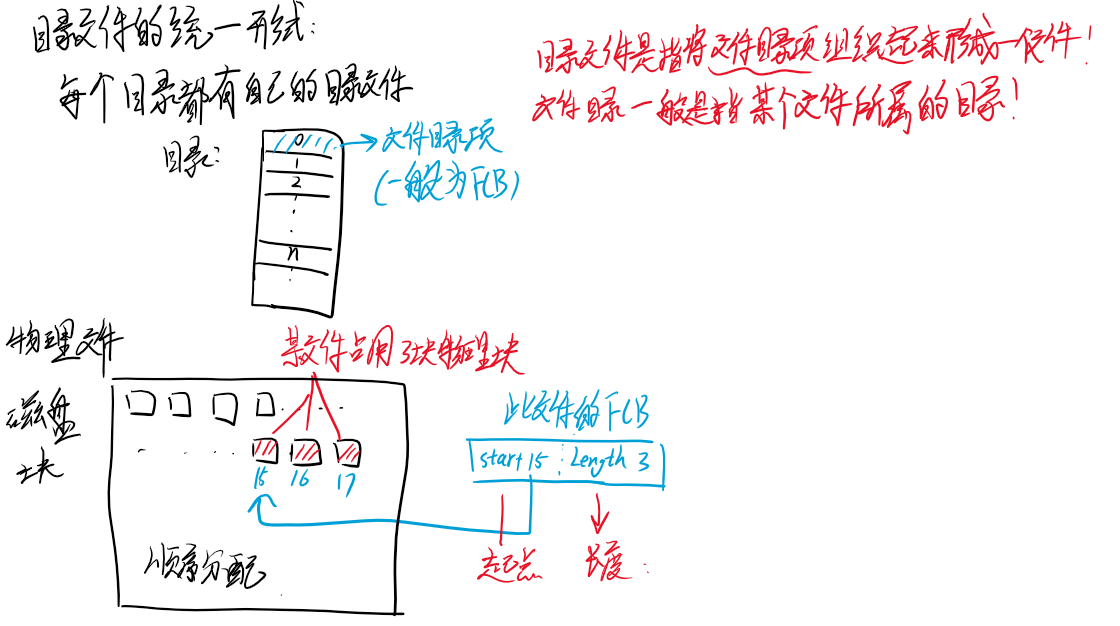 目录文件的统一形式:
每个目录都有自己的目录文件
目录:
0
1
2
n
文件目录项
(一般为FCB)
目录文件是指将文件目录项组织起来形成一份文件!
文件目录一般是指某个文件所属的目录!
物理文件
磁盘
块
某文件占用3块物理块
15 16 17
顺序分配
此文件的FCB
start 15 Length 3
起点 长度